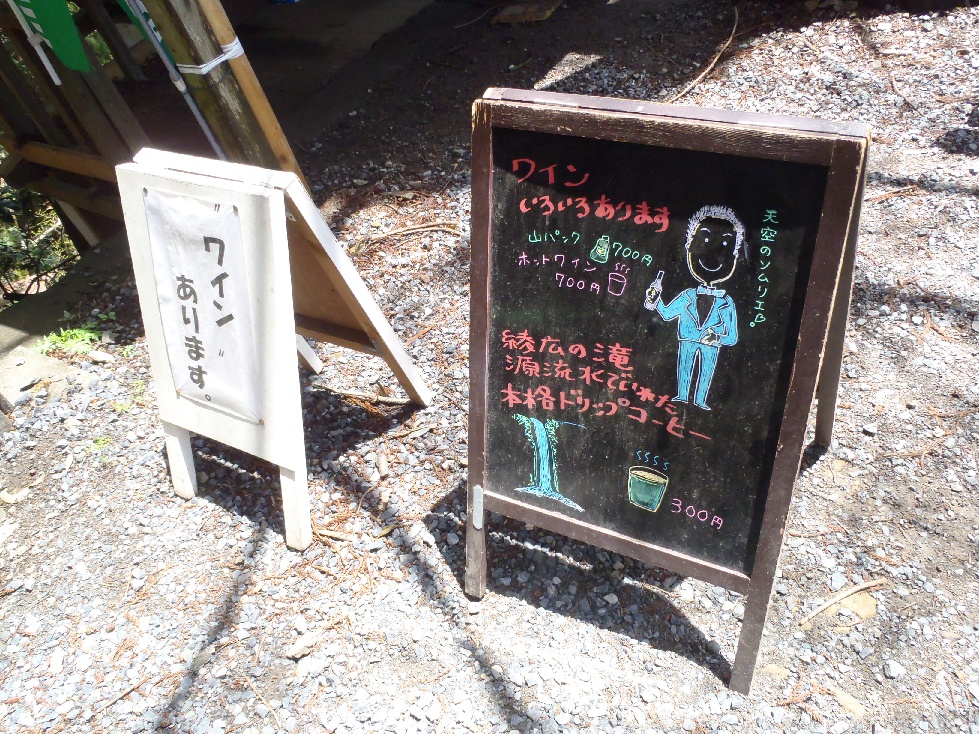 "ワイン"
あります。
ワイン
いろいろあります
山パック 700円
ホットワイン
700円
天空のソムリエ♡。
綾広の滝
源流水でいれた
本格ドリップコーヒー
300円